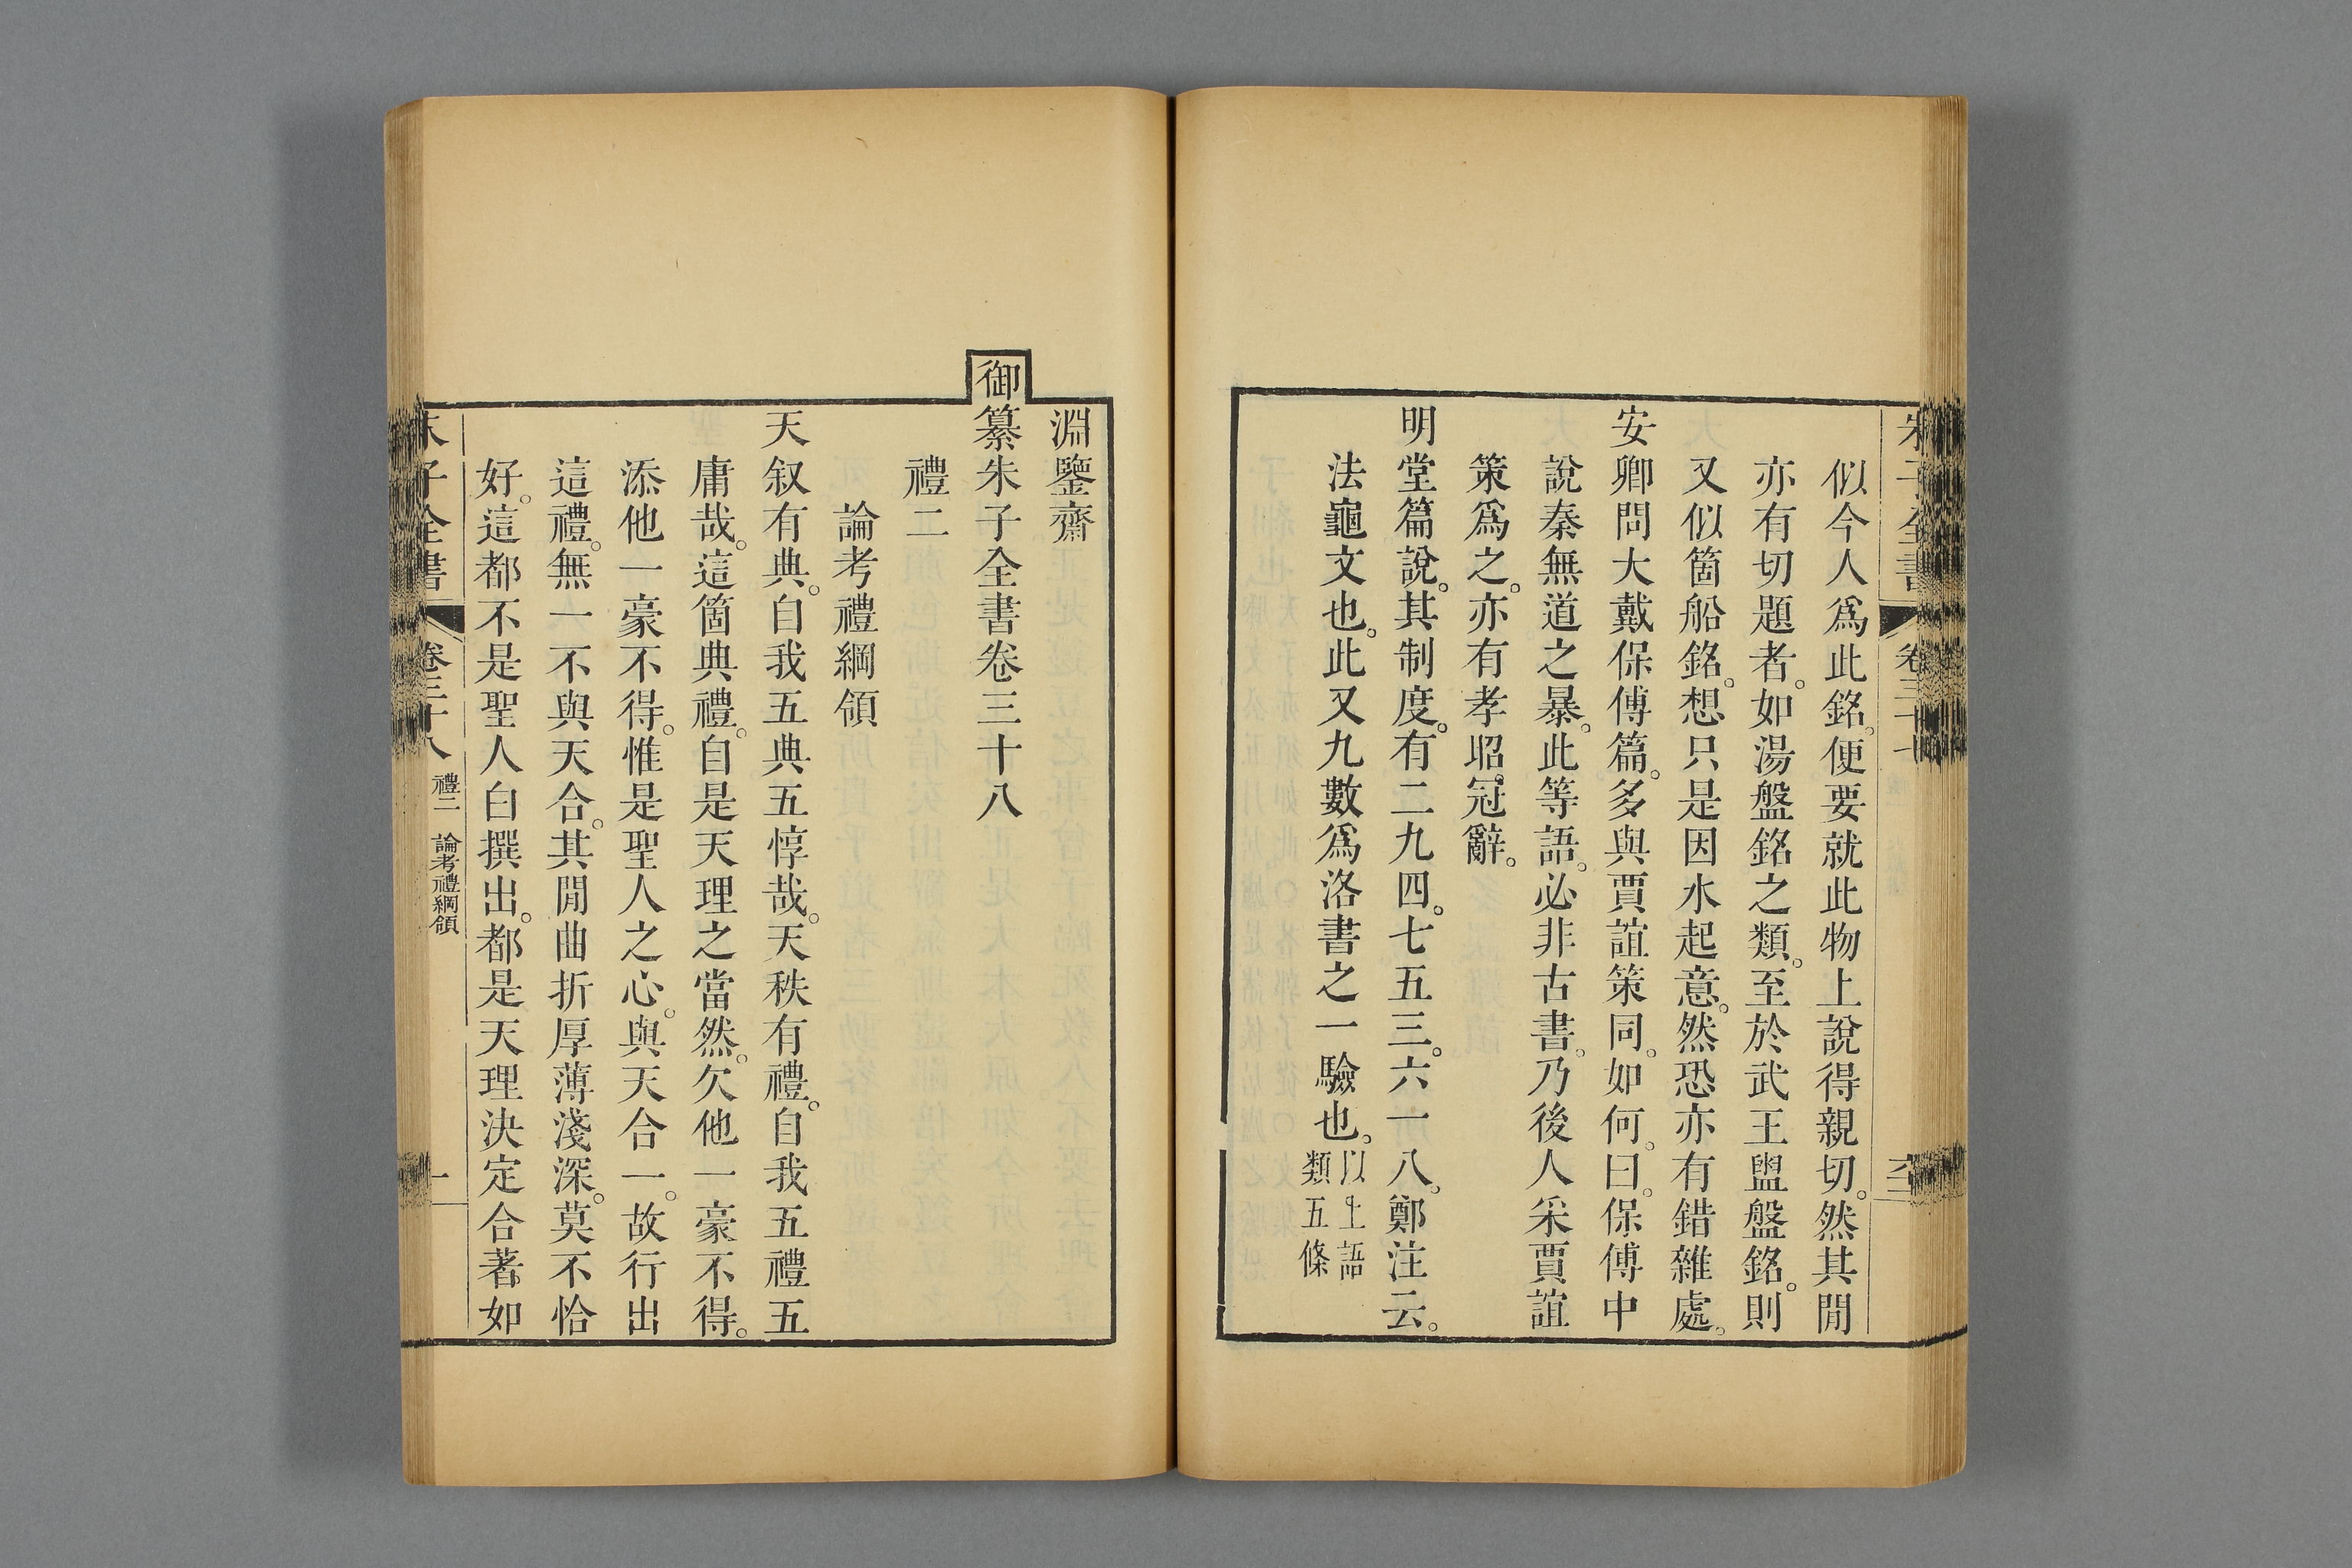 似今人爲此銘。便要就此物上說得親切。然其閒
亦有切題者。如湯盤銘之類。至於武王盥盤銘。則
又似箇船銘。想只是因水起意。然恐亦有錯雜處。
安卿問大戴保傅篇。多與賈誼策同。如何。曰。保傅中
說秦無道之暴。此等語。必非古書。乃後人采賈誼
策爲之。亦有孝昭冠辭。
明堂篇說。其制度。有二九四。七五三。六一八。鄭注云。
法龜文也。此又九數爲洛書之一驗也。
以上語
類五條
淵鑒齋
御纂朱子全書卷三十八
禮二
論考禮綱領
天叙有典。自我五典五惇哉。天秩有禮。自我五禮五
庸哉。這箇典禮。自是天理之當然。欠他一豪不得。
添他一豪不得。惟是聖人之心。與天合一。故行出
這禮。無一不與天合。其閒曲折厚薄淺深。莫不恰
好。這都不是聖人白撰出。都是天理決定合著。如
朱子全書
卷三十八
禮二
論考禮綱領
一